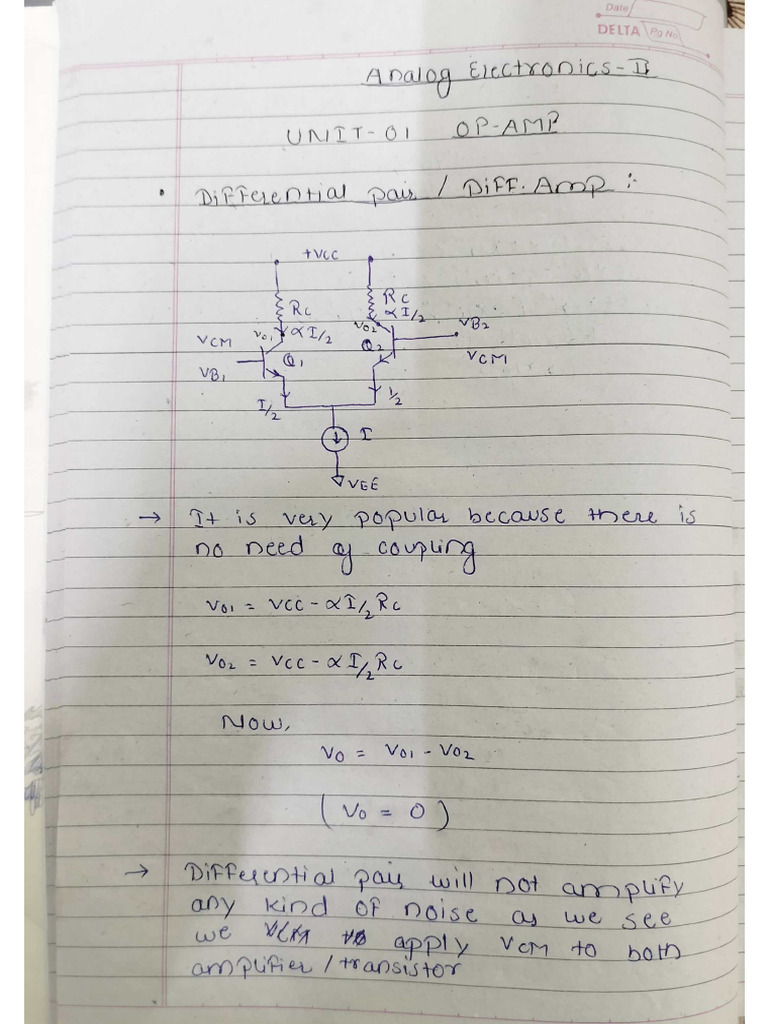 Date
DELTA Pg No
Analog Electronics-II
UNIT-01 OP-AMP
• Differential pair / Diff. Amp :-
+VCC
RC
RC
αI/2
VO1
αI/2
VO2
VB2
VCM
Q1
Q2
VCM
VB1
I/2
I/2
I
VEE
→ It is very popular because there is
no need of coupling
VO1 = VCC - αI/2 RC
VO2 = VCC - αI/2 RC
Now,
VO = VO1 - VO2
(VO = 0)
→ Differential pair will not amplify
any kind of noise as we see
we apply VCM to both
amplifier / transistor